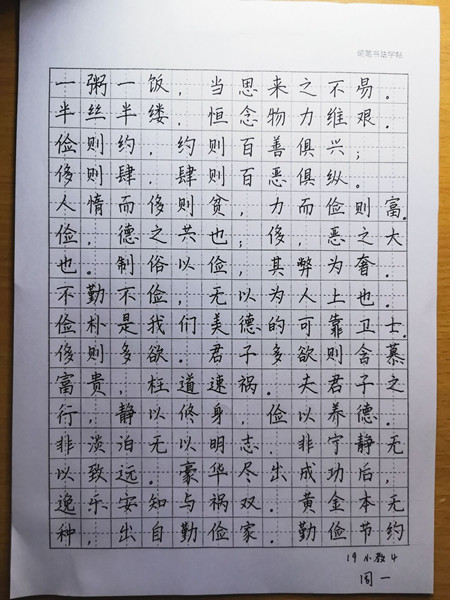 铅笔书法字帖
一粥一饭，当思来之不易。
半丝半缕，恒念物力维艰。
俭则约，约则百善俱兴；
侈则肆，肆则百恶俱纵。
人惰而侈则贫，力而俭则富。
俭，德之共也；侈，恶之大
也。制俗以俭，其弊为奢。
不勤不俭，无以为人上也。
俭朴是我们美德的可靠卫士.
侈则多欲．君子多欲则舍慕
富贵，枉道速祸．夫君子之
行，静以修身，俭以养德．
非淡泊无以明志，非宁静无
以致远．豪华尽出成功后，
逸乐安知与祸双．黄金本无
种，出自勤俭家．勤俭节约
19小教4
周一